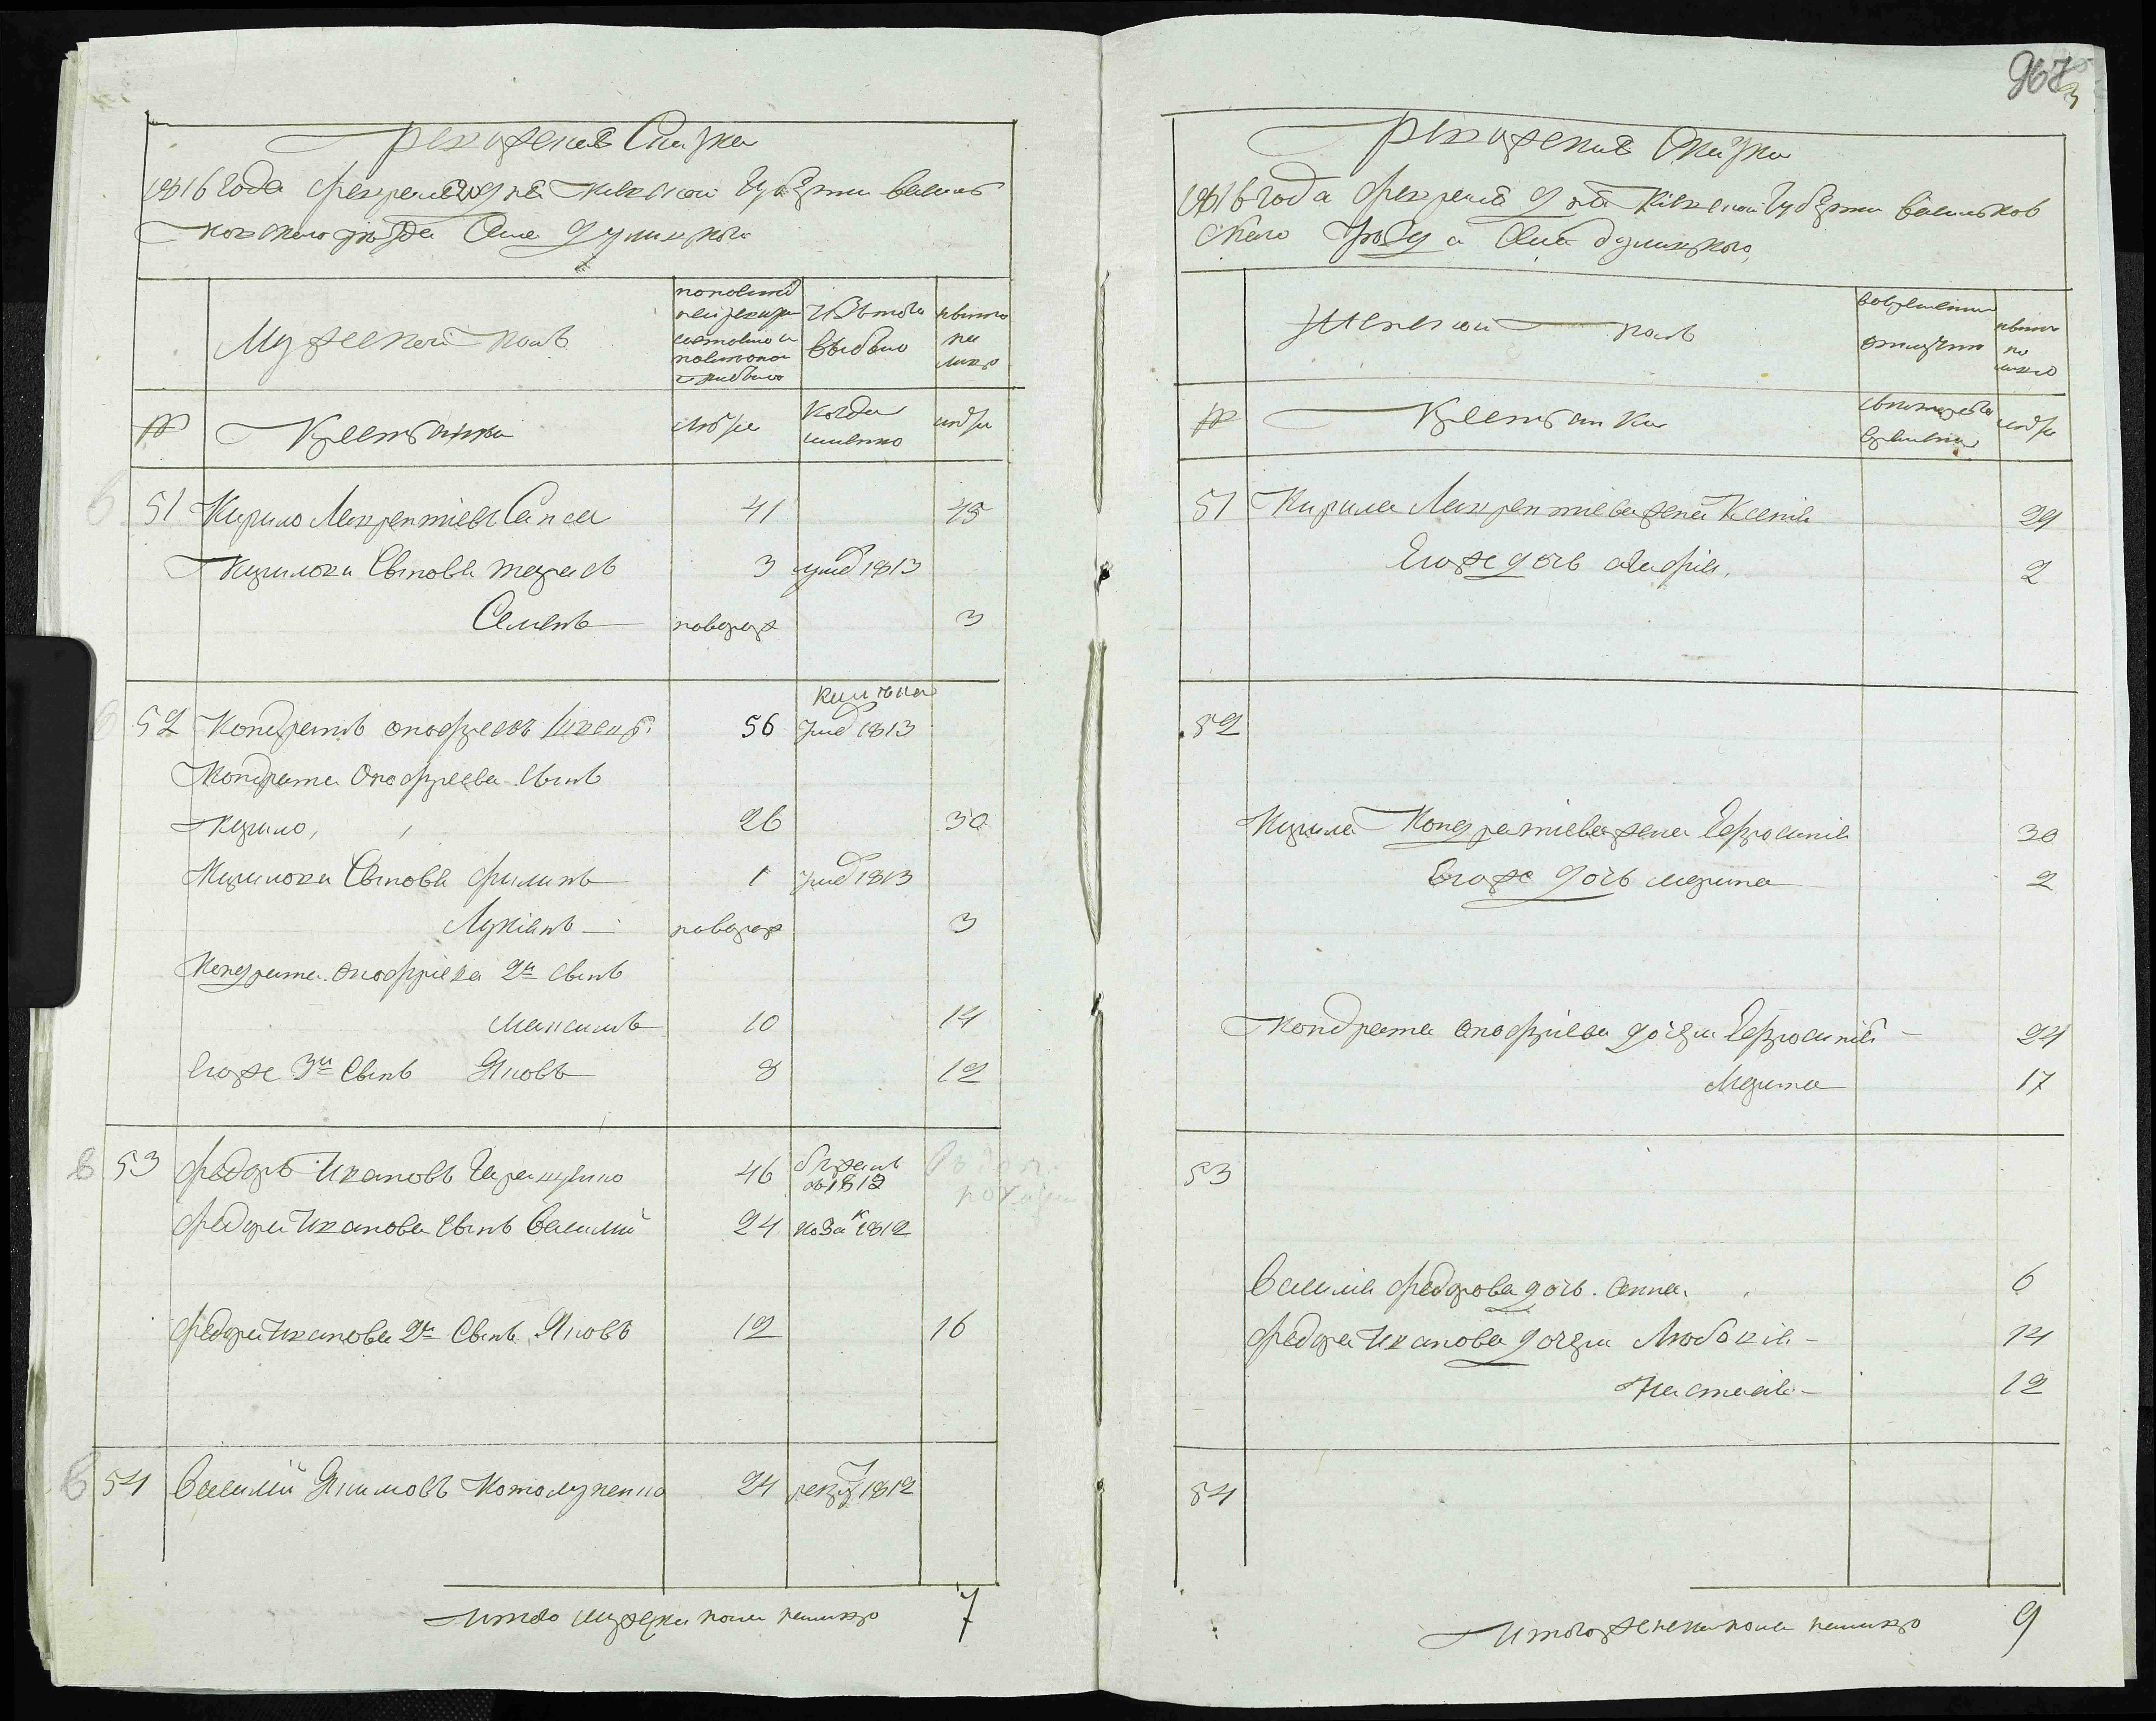 967
3
Ревизская Сказка
1816 года февраля 9 дня Киевской Губернии Василь
ковского уезда Села Дулицкого
Мужеской полъ
по последней ревизии состояло и после оной прибыло
Изъ того выбыло
ныне на лицо
№
Крестьяне
лета
Когда именно
лета
51 Кирило Лаврентиевъ Сапса 41 45
Кириловы Сыновья Тарасъ 3 умер 1813
Семенъ новорож 3
52 Кондратъ Онофреевъ 56 умер 1813
Кондрата Онофреева Сынъ
Кирило, 26 30
Кириловы Сыновья Филипъ 1 умер 1813
Лукіянъ новорож 3
Кондрата Онофріева 2й Сынъ
Максимъ 10 14
Егоже 3й Сынъ Яковъ 8 12
53 Федоръ Ивановъ 46 бежалъ въ 1812
Федора Иванова Сынъ Василий 24 козак 1812
Федора Иванова 2й Сынъ Яковъ 12 16
54 Василий Якимовъ 24 рекру 1812
Итого мужеска пола налицо 7
Ревизская Сказка
1816 года февраля 9 дня Киевской Губернии Васильков
ского Уезда Села Дулицкого
Женской полъ
во временной отлучке
ныне на лицо
№
Крестьянки
съ котораго времени
лета
51 Кирила Лаврентиева жена Ксенія 29
Егоже дочь 2
52
Кирила Кондратиева жена Ефросинія 30
Егоже дочь Марина 2
Кондрата Онофріева дочери Ефросинія 24
Марина 17
53
Василія Федорова дочь Анна. 6
Федора Иванова дочери Любовія 14
Настасія 12
54
Итого женска пола налицо 9